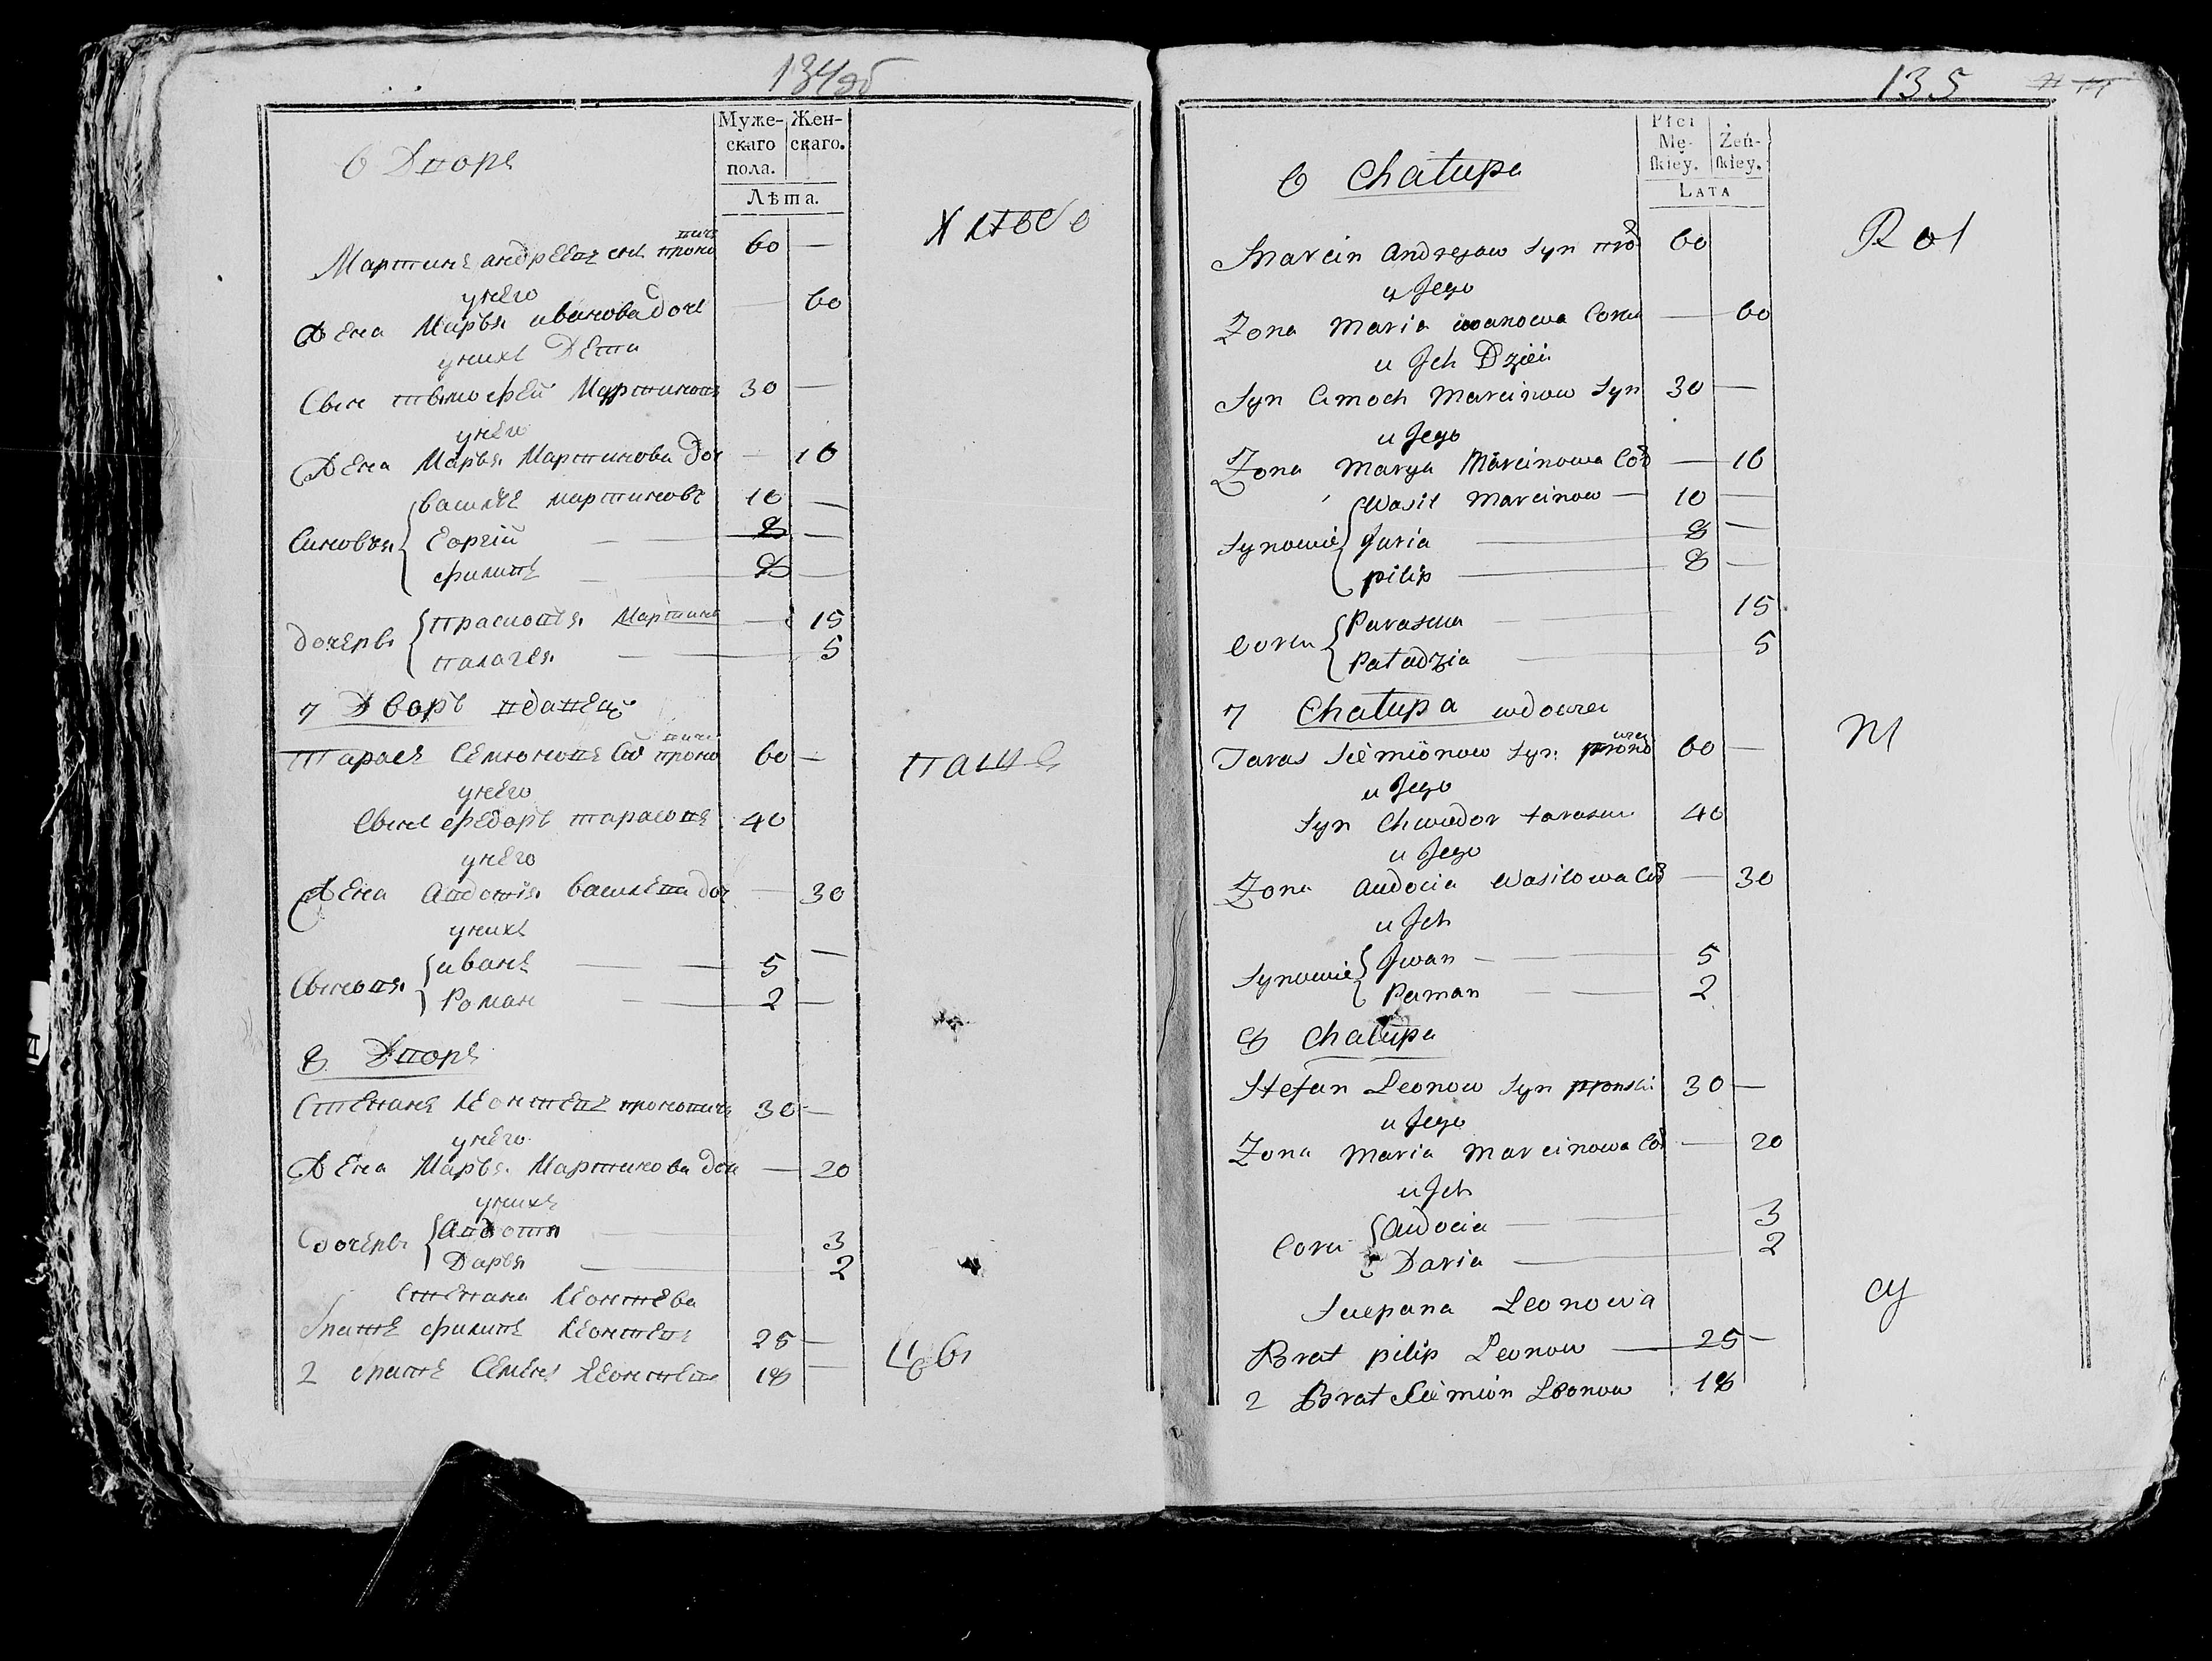 134 об
6 Дворъ
Муже-
скаго
пола.
Жен-
скаго.
Лѣта.
хлебо
вичъ
Мартинъ андрѣевъ снъ проно 60 —
унего
Жена Марья иванова доч — 60
унихъ Дети
Сынъ тымофей Мартиновъ 30 —
унего
Жена Марья Мартинова доч — 16
Синовья
василъ мартиновъ 10 —
Еоргій — 8 —
филипъ — 8 —
дочеръ
прасковья Мартин — 15
палагея — 5
7 Дворъ вдавец
вичъ
Тарасъ Семионовъ Сы проно 60 —
паше
унего
Сынъ федоръ тарасовъ 40
унего
Жена авдотія василева доч — 30
унихъ
Сыновя
иванъ — 5 —
Роман — 2 —
8 Дворъ
Степанъ леонтевъ проновичъ 30 —
унего
Жена Марья Мартинова доч — 20
унихъ
дочеръ
авдотя — 3
Дарья — 2
Степана леонтева
братъ филипъ леонтевъ 25 —
2 братъ Семенъ леонтевъ 18 —
135
6 Chałupa
Płci
Mę-
ſkiey.
Żeń-
ſkiey.
LATA
Rol
Marcin Andrzeow Syn pro 60
u Jego
Zona Maria iwanowa Corka — 60
u Jch Dziei
Syn Cimoch Marcinow Syn 30 —
u Jego
Zona Marya Marcinowa Cor — 16
Synowie
Wasil Marcinow — 10 —
Juria — 8 —
pilip — 8 —
Corki
Paraska — 15
Paładzia — 5
7 Chałupa wdowiec
M
Taras Siemionow Syn prono 60 —
u Jego
Syn Chwiedor tarasow 40
u Jego
Zona Audocia Wasilowa Cor — 30
u Jch
Synowie
Jwan — 5
Raman — 2
8 Chałupa
Stefan Leonow Syn pronowi 30 —
u Jego
Zona Maria Marcinowa Cor — 20
u Jch
Cori
Audocia — 3
Daria — 2
Sciepana Leonowa
Brat pilip Leonow — 25 —
2 Brat Siemion Leonow 18